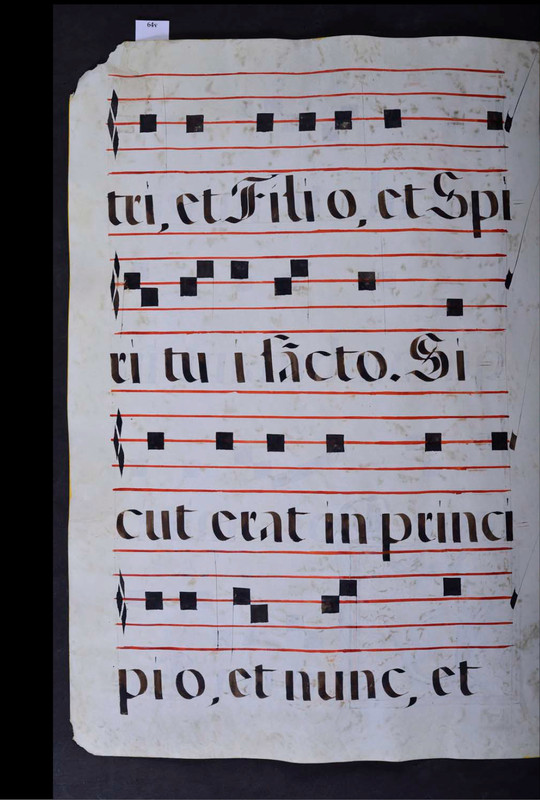 64v
tri, et Filio, et Spi
ri tu i sācto. Si
cut erat in princi
pio, et nunc, et